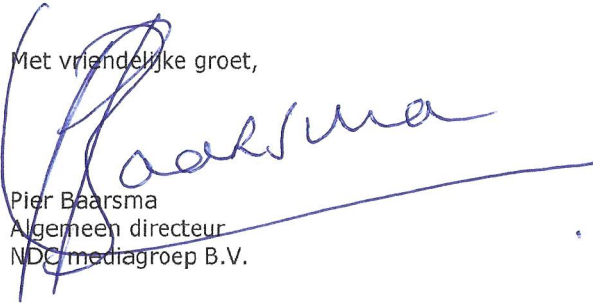 Met vriendelijke groet,
Baarsma
Pier Baarsma
Algemeen directeur
NDC mediagroep B.V.